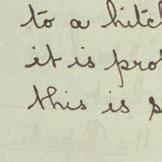 to a hitch
it is pro
this is s